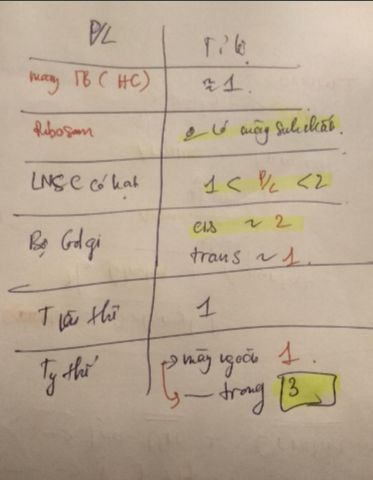 P/L Tỉ lệ
màng TB (HC) ≈ 1.
Ribosom có màng sinh chất.
LNSC có hạt 1 < P/L < 2
Bộ Golgi cis ~ 2
trans ~ 1.
T thể 1
Ty thể → màng ngoài 1.
→ — trong 3